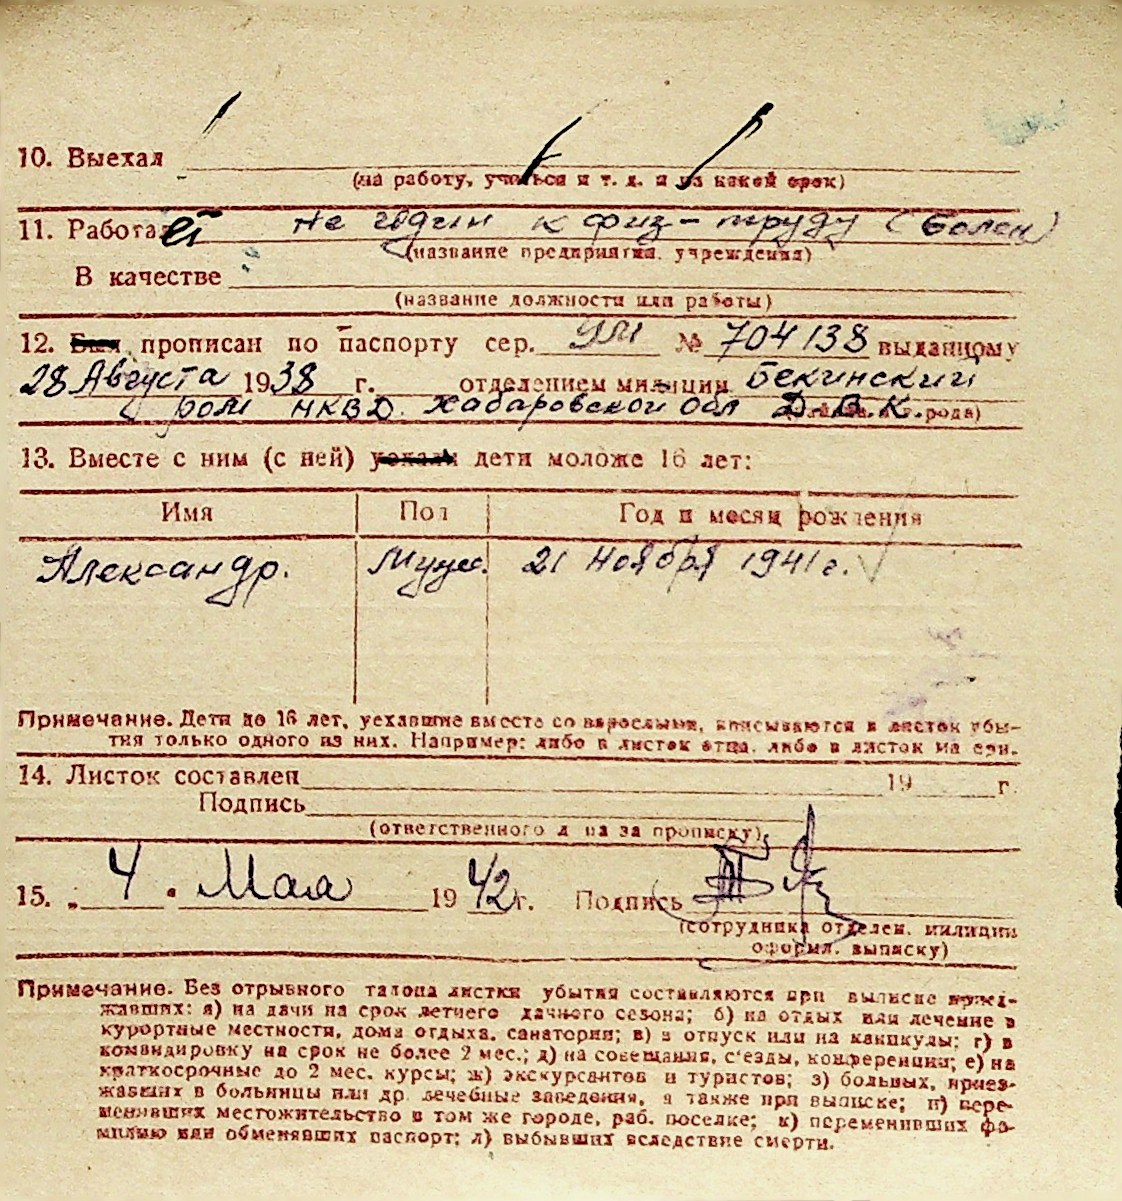 10. Выехал
(на работу, учиться и т. д. и на какой срок)
11. Работает не годин к физ-труду (болен)
(название предприятия, учреждения)
В качестве
(название должности или работы)
12. Был прописан по паспорту сер. № 704138 выданному
28 Августа 1938 г. отделением милиции Бекинский
ром НКВД. Хабаровской обл Д.В.К.
13. Вместе с ним (с ней) уехали дети моложе 16 лет:
Имя Пол Год и месяц рождения
Александр. Муж. 21 ноября 1941 г.
Примечание. Дети до 16 лет, уехавшие вместе со взрослыми, вписываются в листок убы-
тия только одного из них. Например: либо в листок отца, либо в листок матери.
14. Листок составлен 19 г.
Подпись
(ответственного лица за прописку)
15. „4. Мая 1942 г. Подпись
(сотрудника отделен. милиции
оформл. выписку)
Примечание. Без отрывного талона листки убытия составляются при выписке приез-
жавших: а) на дачи на срок летнего дачного сезона; б) на отдых или лечение в
курортные местности, дома отдыха, санатории; в) в отпуск или на каникулы; г) в
командировку на срок не более 2 мес.; д) на совещания, с'езды, конференции; е) на
краткосрочные до 2 мес. курсы; ж) экскурсантов и туристов; з) больных, приез-
жавших в больницы или др. лечебные заведения, а также при выписке; и) пере-
менивших местожительство в том же городе, раб. поселке; к) переменивших фа-
милию или обменявших паспорт; л) выбывших вследствие смерти.